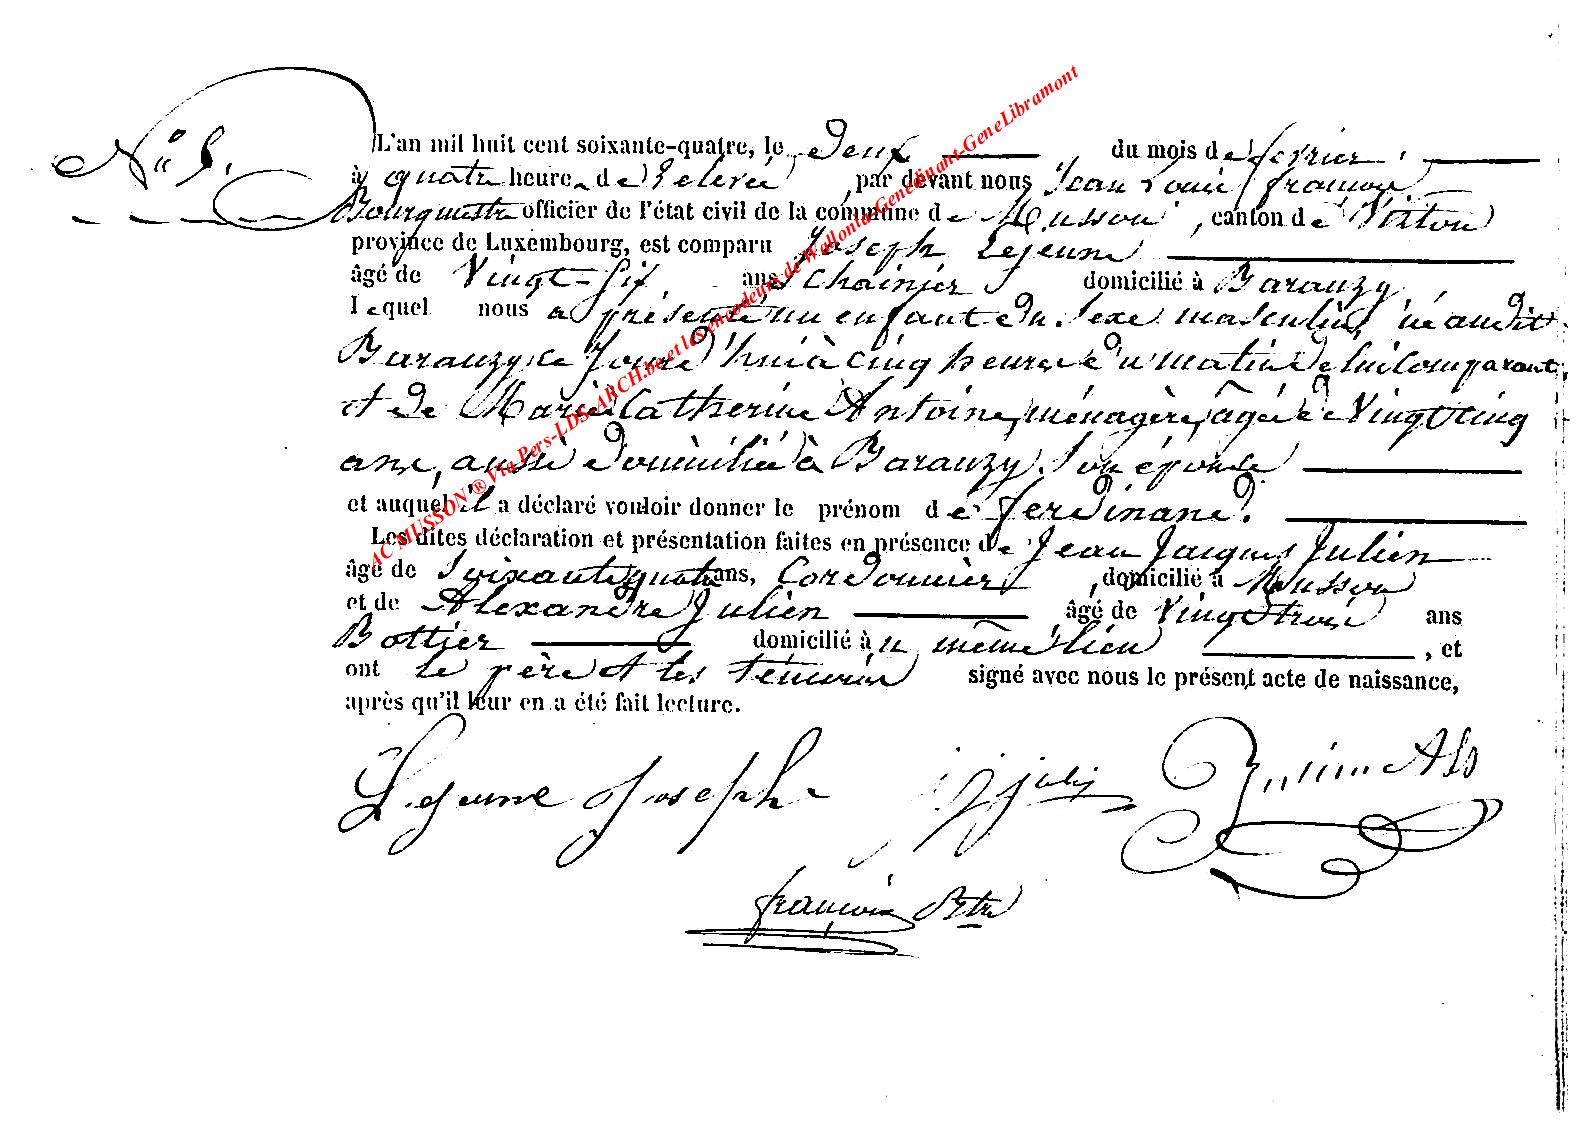 N° 5.
L'an mil huit cent soixante-quatre, le deux du mois de février
à quatre heures de relevé par devant nous Jean Louis François
Bourgmestre officier de l'état civil de la commune de Musson, canton de Virton
province de Luxembourg, est comparu Joseph Lejeune
âgé de Vingt-Six ans Chainier domicilié à Baranzy,
Lequel nous a présenté un enfant du Sexe masculin, né audit
Baranzy, ce Jour d'hui à cinq heures du matin de lui comparant,
et de Marie Catherine Antoine, ménagère, âgée de Vingt cinq
ans, aussi domiciliée à Baranzy, Son épouse
et auquel il a déclaré vouloir donner le prénom de ferdinand.
Les dites déclaration et présentation faites en présence de Jean Jacques Julien
âgé de Soixante quatre ans, Cordonnier, domicilié à Musson
et de Alexandre Julien âgé de Vingt trois ans
Bottier domicilié à même lieu, et
ont le père et les témoins signé avec nous le présent acte de naissance,
après qu'il leur en a été fait lecture.
Lejeune Joseph JJ Julien Als
françois Btre
AC MUSSON ® Via Pers-LDS-ARCH.be et les encodeurs de Wallonia-Genedinant-GeneLibramont